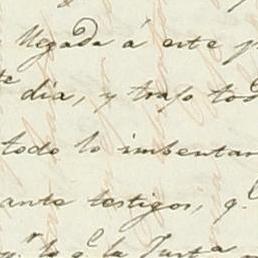 llegada á este
dia, y trajo tod
todo lo imbentar
ante testigos, q.
lo q.e la Justa